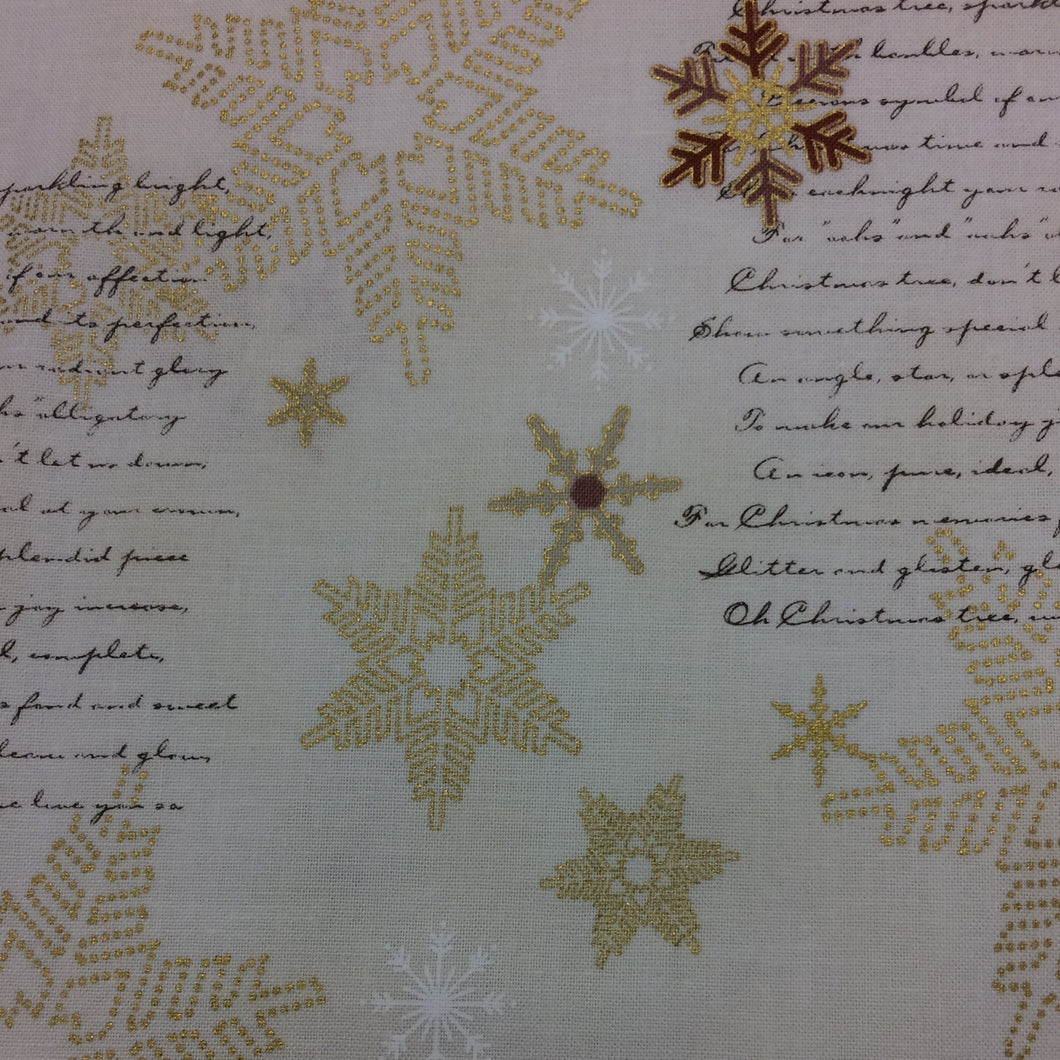 sparkling bright,
warmth and light,
of our affection
and to perfection,
radiant glory
"alligatory
't let us down,
at your crown,
splendid piece
joy increase,
complete,
fond and sweet
gleam and glow,
we love you so
Christmas tree, sparkl
baubles, warm
symbol of our
time and
each night you
For "oohs" and "aahs"
Christmas tree, don't l
Show something special
An angle, star, or sple
To make our holiday
An icon, pure, ideal,
For Christmas memories
Glitter and glisten, gle
Oh Christmas tree, we